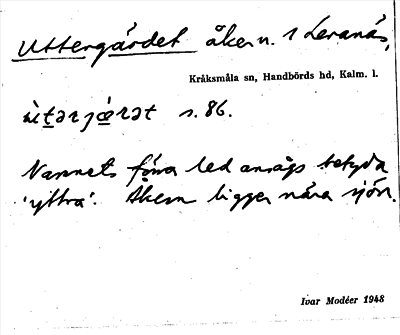 Uttergärdet åkern. 1 Leranäs,
Kråksmåla sn, Handbörds hd, Kalm. l.
s. 86.
Namnets förra led ansågs betyda
'yttra'. Åkern ligger nära sjön.
Ivar Modéer 1948